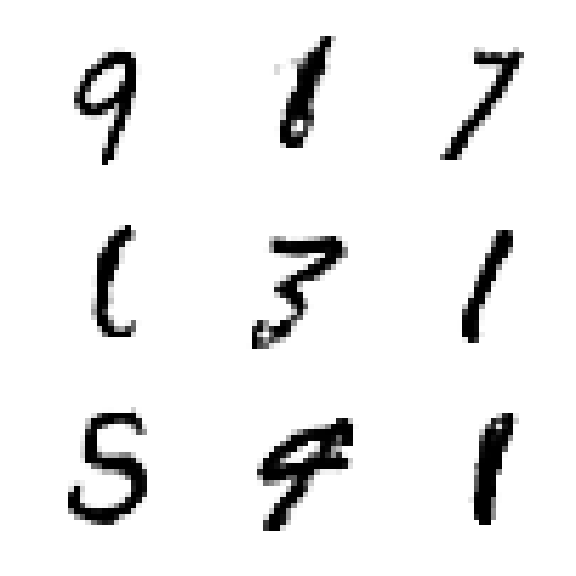 9 8 7
1 3 1
5 9 1